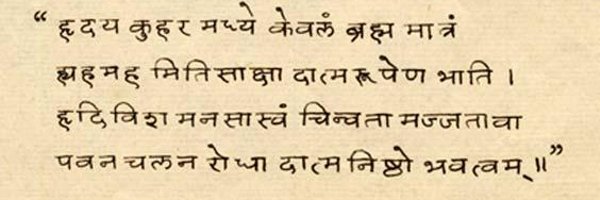 “हृदय कुहर मध्ये केवलं ब्रह्म मात्रं
ह्यहमह मितिसाक्षा दात्मरूपेण भाति ।
हृदिविश मनसास्वं चिन्वता मज्जतावा
पवनचलन रोधा दात्मनिष्ठो भवत्वम् ॥”